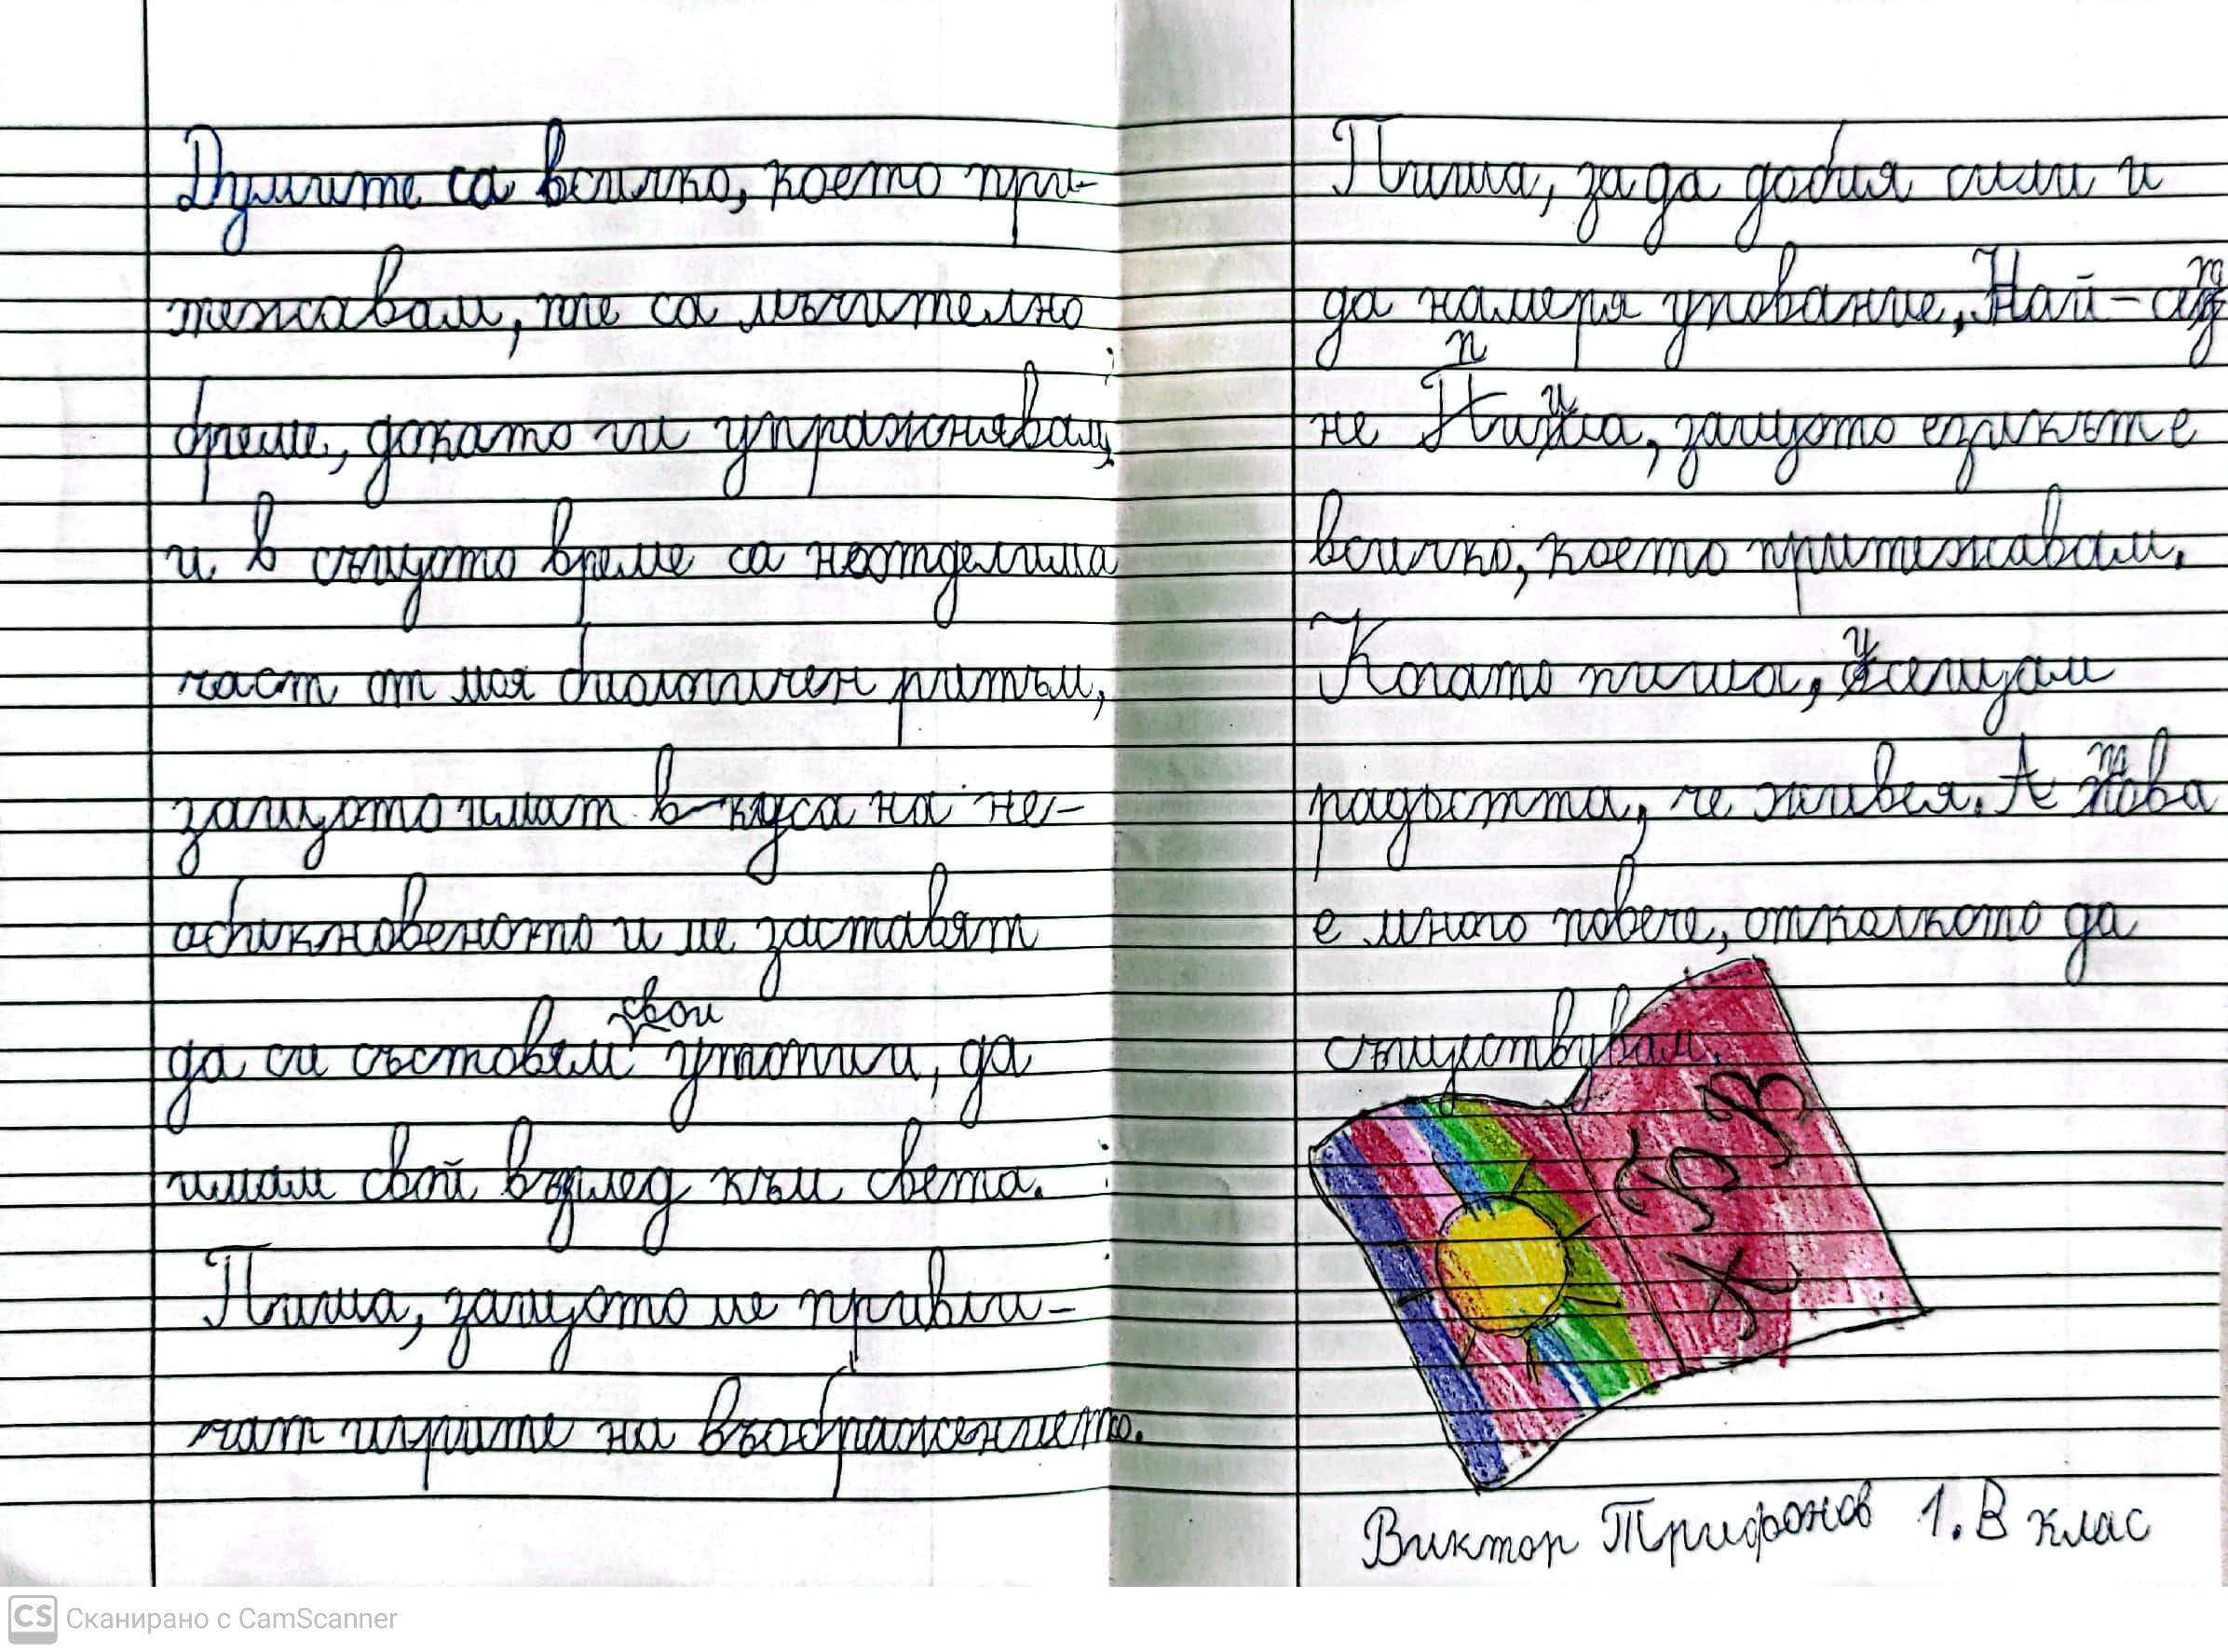 Думите са всичко, което при-
тежавам, те са мъчително
бреме, докато ги упражнявам,
и в същото време са неотделима
част от моя биологичен ритъм,
защото имат вкуса на не-
обикновеното и ме заставят
да си съставям свои утопии, да
имам свой възглед към света.
Пиша, защото ме привли-
чат игрите на въображението.
Пиша, за да добия сили и
да намеря упование, Най-
не пиша, защото езикът е
всичко, което притежавам.
Когато пиша, усещам
радостта, че живея. А това
е много повече, отколкото да
съществувам.
ХГВ
Виктор Трифонов 1. В клас
CS Сканирано с CamScanner